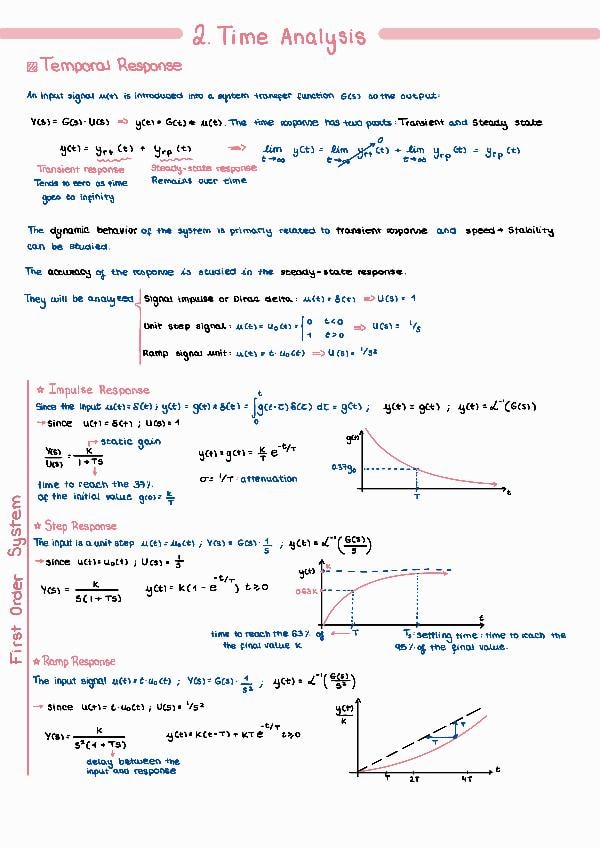 2. Time Analysis
Temporal Response
An input signal u(t) is introduced into a system transfer function G(s) so the output:
Y(s) = G(s)·U(s) ⇒ y(t) = G(t) * u(t). The time response has two parts: Transient and Steady state
y(t) = yrt(t) + yrp(t) ⇒ lim t→∞ y(t) = lim t→∞ yrt(t) 0 + lim t→∞ yrp(t) = yrp(t)
Transient response Steady-state response
Tends to zero as time Remains over time
goes to infinity
The dynamic behavior of the system is primarly related to transient response and speed + Stability
can be studied.
The accuracy of the response is studied in the steady-state response.
They will be analyzed
Signal impulse or Dirac delta: u(t) = δ(t) ⇒ U(s) = 1
Unit step signal: u(t) = u0(t) = { 0 t<0 ⇒ U(s) = 1/s
1 t>0
Ramp signal unit: u(t) = t·u0(t) ⇒ U(s) = 1/s²
First Order System
☆ Impulse Response
Since the input u(t) = δ(t); y(t) = g(t) * δ(t) = ∫₀ᵗ g(t-τ) δ(τ) dτ = g(t); y(t) = g(t); y(t) = L⁻¹(G(s))
→ since u(t) = δ(t); U(s) = 1
→ static gain
Y(s)/U(s) = K/(1+TS) y(t) = g(t) = K/T e^(-t/T)
time to reach the 37%
of the initial value g(0) = K/T
σ = 1/T · attenuation
g(t)
0.37g0
T
t
☆ Step Response
The input is a unit step u(t) = u0(t); Y(s) = G(s)·1/s; y(t) = L⁻¹(G(s)/s)
→ since u(t) = u0(t); U(s) = 1/s
Y(s) = K/(S(1+TS)) y(t) = K(1 - e^(-t/T)) t≥0
y(t)
K
0.63K
t
time to reach the 63% of ← T
the final value K
Ts: settling time: time to reach the
95% of the final value.
☆ Ramp Response
The input signal u(t) = t·u0(t); Y(s) = G(s)·1/s²; y(t) = L⁻¹(G(s)/s²)
→ since u(t) = t·u0(t); U(s) = 1/s²
Y(s) = K/(s²(1+TS)) y(t) = K(t-T) + KT e^(-t/T) t≥0
delay between the
input and response
y(t)/K
T
T
T 2T 4T
t